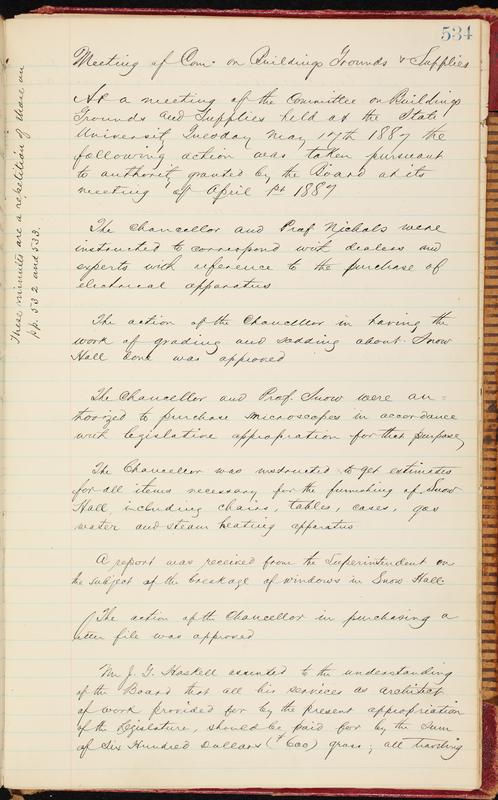 534
Meeting of Com. on Buildings Grounds & Supplies
At a meeting of the Committee on Buildings
Grounds and Supplies held at the State
University Tuesday May 17th 1887 the
following action was taken pursuant
to authority granted by the Board at its
meeting of April 1st 1887
The Chancellor and Prof Nichols were
instructed to correspond with dealers and
experts with reference to the purchase of
electrical apparatus
The action of the Chancellor in having the
work of grading and sodding about Snow
Hall done was approved
The Chancellor and Prof. Snow were au=
thorized to purchase microscopes in accordance
with legislative appropriation for that purpose,
The Chancellor was instructed to get estimates
for all items necessary for the furnishing of Snow
Hall, including chairs, tables, cases, gas
water and steam heating apparatus
A report was received from the Superintendent on
the subject of the breakage of windows in Snow Hall
The action of the Chancellor in purchasing a
letter file was approved
Mr J. G. Haskell assented to the understanding
of the Board that all his services as architect
of work provided for by the present appropriation
of the legislature, should be paid for by the sum
of Six Hundred Dollars ($600) gross; all traveling
These minutes are a repetition of those on
pp. 532 and 533.